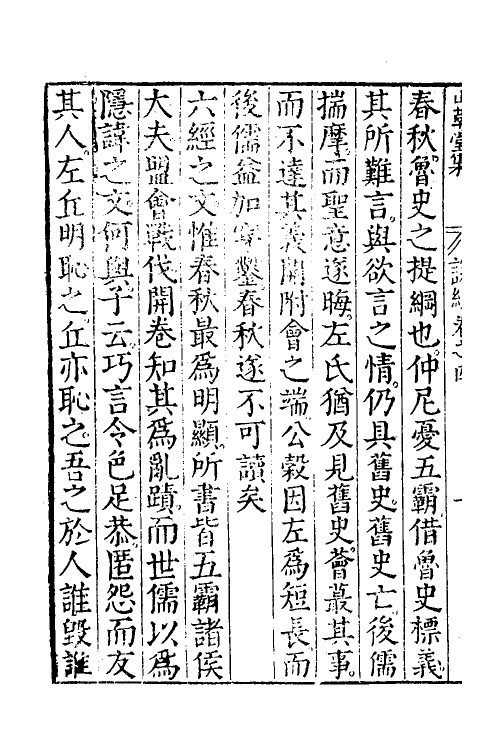 春秋魯史之提綱也仲尼憂五霸借魯史標義
其所難言與欲言之情仍具舊史舊史亡後儒
揣摩而聖意遂晦左氏猶及見舊史薈蕞其事
而不達其義開附會之端公榖因左爲短長而
後儒益加穿鑿春秋遂不可讀矣
六經之文惟春秋最爲明顯所書皆五霸諸侯
大夫盟會戰伐開卷知其爲亂蹟而世儒以爲
隱諱之文何與子云巧言令色足恭匿怨而友
其人左丘明恥之丘亦恥之吾之於人誰毀誰